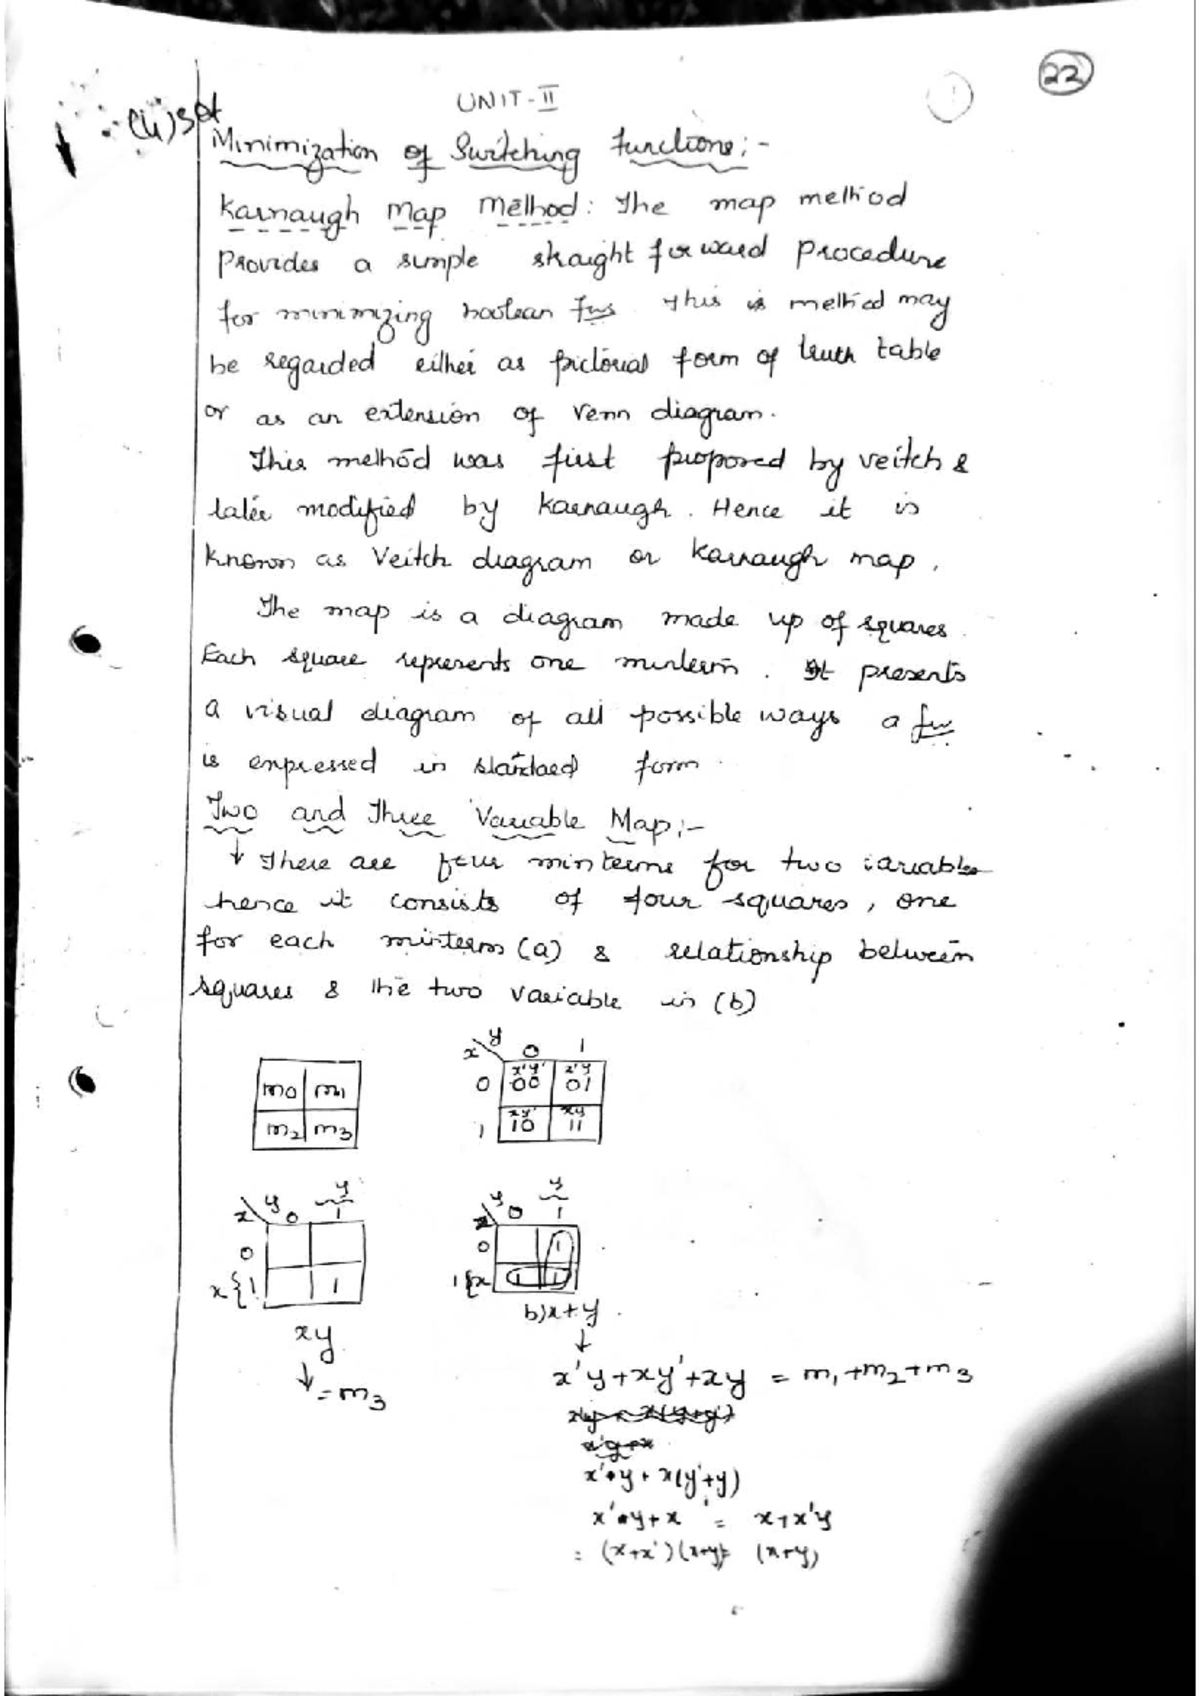 22
UNIT-II
(4) Set
Minimization of Switching Functions:-
Karnaugh Map Method: The map method
provides a simple straight forward procedure
for minimizing boolean fns. This is method may
be regarded either as pictorial form of truth table
or as an extension of venn diagram.
This method was first proposed by veitch &
later modified by Karnaugh. Hence it is
known as Veitch diagram or Karnaugh map.
The map is a diagram made up of squares.
Each square represents one minterm. It presents
a visual diagram of all possible ways a fn
is expressed in standard form.
Two and Three Variable Map:-
↓ There are four minterms for two variables
hence it consists of four squares, one
for each minterm (a) & relationship between
squares & the two variable in (b)
m0 m1
m2 m3
x y 0 1
0 x'y' 00 x'y 01
1 xy' 10 xy 11
x y 0 y 1
0
x{1 1
xy
↓
= m3
x y 0 y 1
0 1
1{x 1 1
b) x+y.
↓
x'y+xy'+xy = m1+m2+m3
x'y+x
x'•y + x(y'+y)
x'•y+x = x+x'y
= (x+x')(x+y)= (x+y)